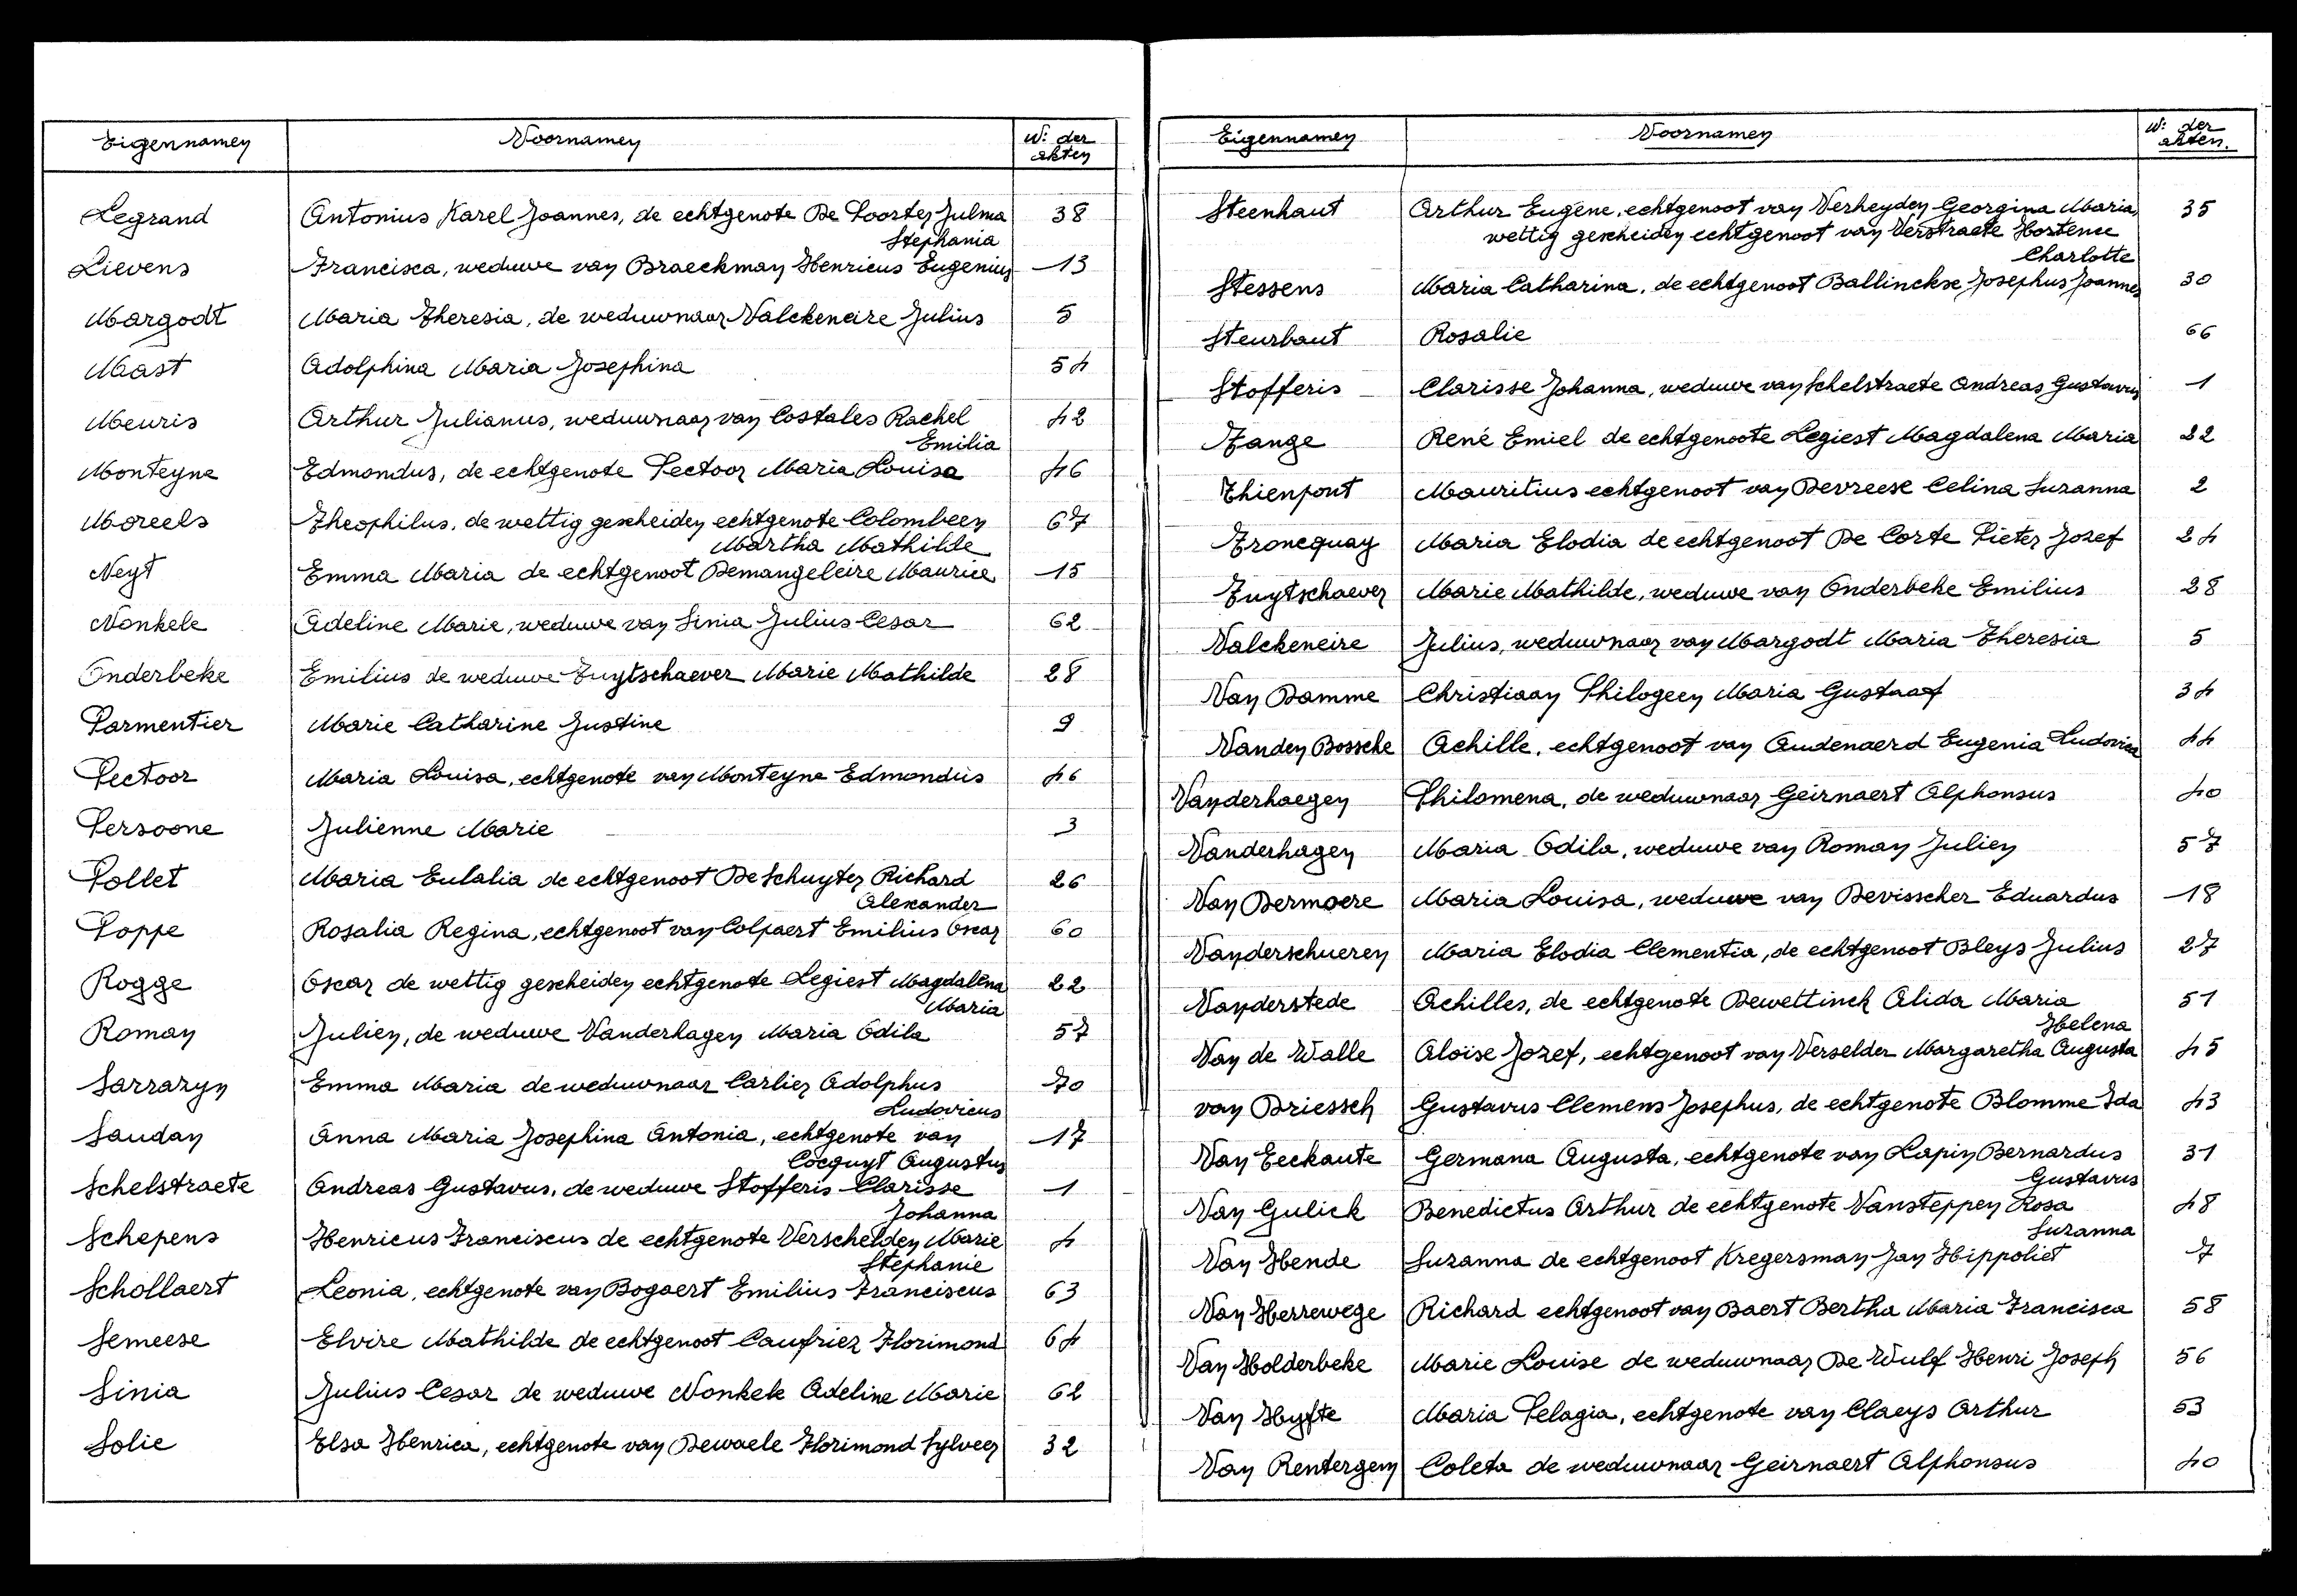 Eigennamen Voornamen N: der akten
Legrand Antonius Karel Joannes, de echtgenote De Poorter Julma 38
Stephania
Lievens Francisca, weduwe van Braeckman Henricus Eugenius 13
Margodt Maria Theresia, de weduwnaar Valckeneire Julius 5
Mast Adolphina Maria Josephina 54
Meuris Arthur Julianus, weduwnaar van Costales Rachel 42
Emilia
Monteyne Edmondus, de echtgenote Pectoor Maria Louisa 46
Moreels Theophilus, de wettig gescheiden echtgenote Colombeen 67
Martha Mathilde
Neyt Emma Maria de echtgenoot Demangeleire Maurice 15
Nonkele Adeline Marie, weduwe van Sinia Julius Cesar 62
Onderbeke Emilius de weduwe Tuytschaever Marie Mathilde 28
Parmentier Marie Catharine Justine 9
Pectoor Maria Louisa, echtgenote van Monteyne Edmondus 46
Persoone Julienne Marie 3
Pollet Maria Eulalia de echtgenoot De Schuyter Richard 26
Alexander
Poppe Rosalia Regina, echtgenoot van Colpaert Emilius Oscar 60
Rogge Oscar de wettig gescheiden echtgenote Legiest Magdalena 22
Maria
Roman Julien, de weduwe Vanderhagen Maria Odila 57
Sarrazyn Emma Maria de weduwnaar Carlier Adolphus 70
Ludovicus
Saudan Anna Maria Josephina Antonia, echtgenote van 17
Cocquyt Augustus
Schelstraete Andreas Gustavus, de weduwe Stofferis Clarisse 1
Johanna
Schepens Henricus Franciscus de echtgenote Verschelden Marie 4
Stephanie
Schollaert Leonia, echtgenote van Bogaert Emilius Franciscus 63
Semeese Elvire Mathilde de echtgenoot Caufriez Florimond 64
Sinia Julius Cesar de weduwe Nonkele Adeline Marie 62
Solie Elsa Henrica, echtgenote van Dewaele Florimond Sylveer 32
Eigennamen Voornamen N: der akten.
Steenhaut Arthur Eugène, echtgenoot van Verheyden Georgina Maria, 35
wettig gescheiden echtgenoot van Verstraete Hortence
Charlotte
Stessens Maria Catharina, de echtgenoot Ballinckse Josephus Joannes 30
Steurbaut Rosalie 66
Stofferis Clarisse Johanna, weduwe van Schelstraete Andreas Gustavus 1
Tange René Emiel de echtgenoote Legiest Magdalena Maria 22
Thienpont Mauritius echtgenoot van Devreese Celina Suzanna 2
Troncquay Maria Elodia de echtgenoot De Corte Pieter Jozef 24
Tuytschaever Marie Mathilde, weduwe van Onderbeke Emilius 28
Valckeneire Julius, weduwnaar van Margodt Maria Theresia 5
Van Damme Christiaan Philogeen Maria Gustaaf 34
Vanden Bossche Achille, echtgenoot van Audenaerd Eugenia Ludovica 44
Vanderhaegen Philomena, de weduwnaar Geirnaert Alphonsus 40
Vanderhagen Maria Odila, weduwe van Roman Julien 57
Van Dermoere Maria Louisa, weduwe van Devisscher Eduardus 18
Vanderschueren Maria Elodia Clementia, de echtgenoot Bleys Julius 27
Vanderstede Achilles, de echtgenote Dewettinck Alida Maria 51
Helena
Van de Walle Aloïse Jozef, echtgenoot van Verselder Margaretha Augusta 45
van Driessch Gustavus Clemens Josephus, de echtgenote Blomme Ida 43
Van Eeckaute Germana Augusta, echtgenote van Lapin Bernardus 31
Gustavus
Van Gulick Benedictus Arthur de echtgenote Vansteppen Rosa 48
Suzanna
Van Hende Suzanna de echtgenoot Kregersman Jan Hippoliet 7
Van Herrewege Richard echtgenoot van Baert Bertha Maria Francisca 58
Van Holderbeke Marie Louise de weduwnaar De Wulf Henri Joseph 56
Van Hyfte Maria Pelagia, echtgenote van Claeys Arthur 53
Van Rentergem Coleta de weduwnaar Geirnaert Alphonsus 40